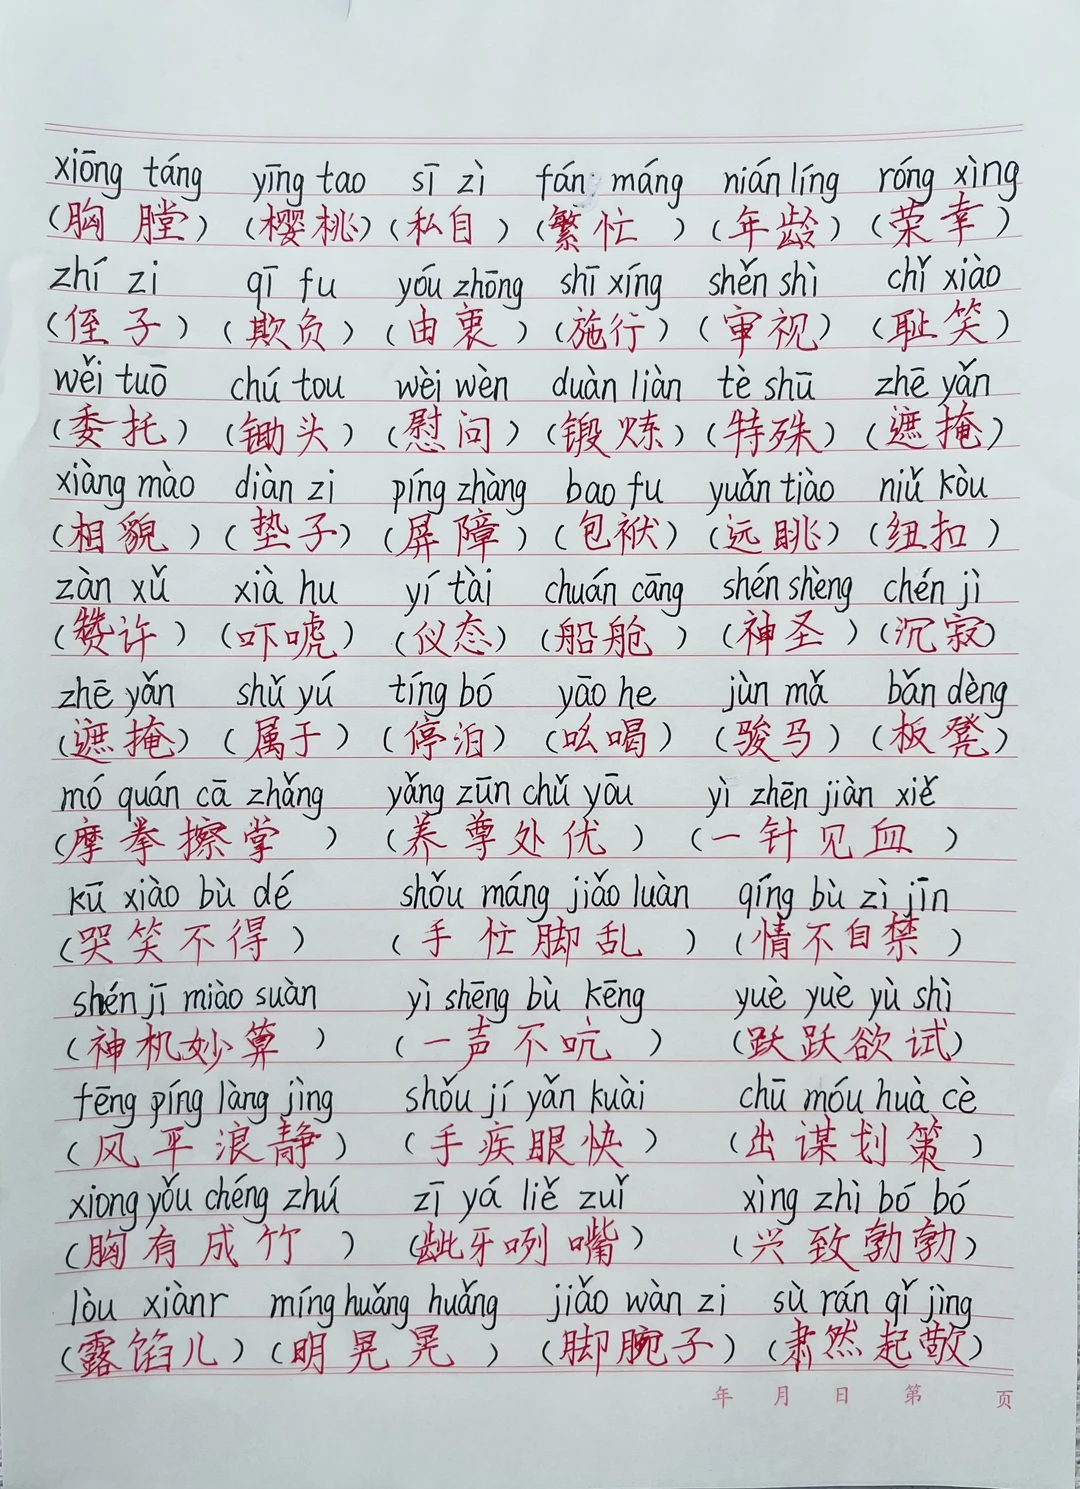 xiōng táng yīng tao sī zì fán máng nián líng róng xìng
(胸膛) (樱桃) (私自) (繁忙) (年龄) (荣幸)
zhí zi qī fu yóu zhōng shī xíng shěn shì chǐ xiào
(侄子) (欺负) (由衷) (施行) (审视) (耻笑)
wěi tuō chú tou wèi wèn duàn liàn tè shū zhē yǎn
(委托) (锄头) (慰问) (锻炼) (特殊) (遮掩)
xiàng mào diàn zi píng zhàng bao fu yuǎn tiào niǔ kòu
(相貌) (垫子) (屏障) (包袱) (远眺) (纽扣)
zàn xǔ xià hu yí tài chuán cāng shén shèng chén jì
(赞许) (吓唬) (仪态) (船舱) (神圣) (沉寂)
zhē yǎn shǔ yú tíng bó yāo he jùn mǎ bǎn dèng
(遮掩) (属于) (停泊) (吆喝) (骏马) (板凳)
mó quán cā zhǎng yǎng zūn chǔ yōu yì zhēn jiàn xiě
(摩拳擦掌) (养尊处优) (一针见血)
kū xiào bù dé shǒu máng jiǎo luàn qíng bù zì jīn
(哭笑不得) (手忙脚乱) (情不自禁)
shén jī miào suàn yì shēng bù kēng yuè yuè yù shì
(神机妙算) (一声不吭) (跃跃欲试)
fēng píng làng jìng shǒu jí yǎn kuài chū móu huà cè
(风平浪静) (手疾眼快) (出谋划策)
xiong yǒu chéng zhú zī yá liě zuǐ xìng zhì bó bó
(胸有成竹) (龇牙咧嘴) (兴致勃勃)
lòu xiànr míng huǎng huǎng jiǎo wàn zi sù rán qǐ jìng
(露馅儿) (明晃晃) (脚腕子) (肃然起敬)
年 月 日 第 页